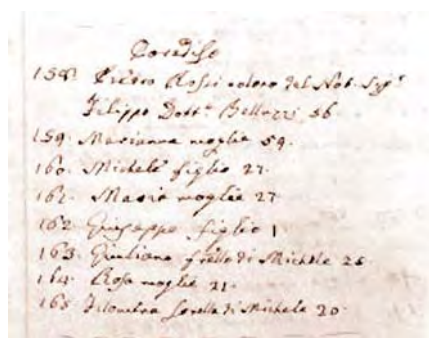 Paradiso
158. Pietro Rossi colono del Nob. Sigr
Filippo Dottr. Bellozzi 56
159. Marianna moglie 59.
160. Michele figlio 27.
161. Maria moglie 27
162 Giuseppe figlio 1
163. Giuliano frello di Michele 26
164. Rosa moglie 21.
165 Filomena sorella di Michele 20.